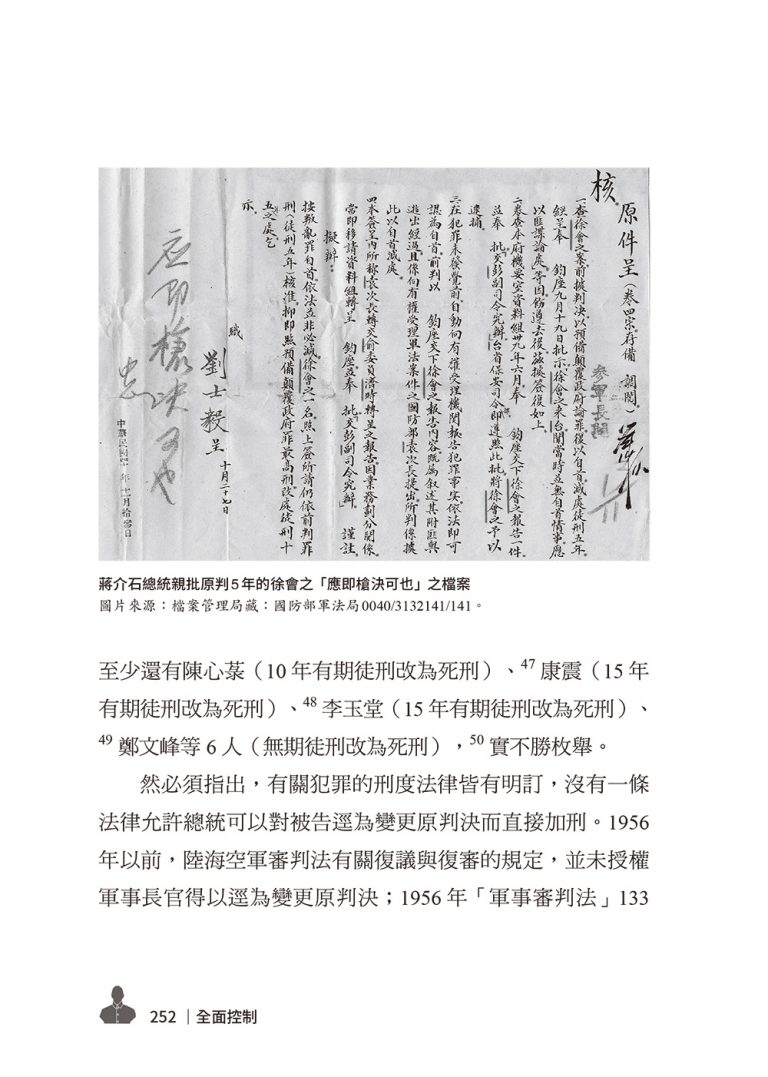 核
原件呈(卷四宗存備 調閱)
參軍長閱
一、查徐會之案前據判決以預備顛覆政府論罪復以自首減處徒刑五年。
經呈奉 鈞座九月十九日批示:徐會之來台關當時並無自首情事應
以匪諜論處。等因飭遵去後茲據簽復如上。
二、卷查本府機要室資料組卅九年六月奉 鈞座交下徐會之報告一件。
並奉 批交彭副司令究辦台省保安司令即遵照此批將徐會之予以
逮捕。
三、在犯罪未發覺前自動向有權受理機關報告犯罪事實依法即可
認為自首。前判以 鈞座交下徐會之報告內容既為敘述其附匪與
逃出經過且係向有權受理軍法案件之國防部袁次長提出。所判係據
此以自首減處。
四、本簽呈內所稱袁次長轉交俞委員濟時轉呈之報告因業務劃分關係。
當即移請資料組轉呈 鈞座並奉 批交彭副司令究辦。 謹註。
擬辦:
按叛亂罪自首。依法並非必減徐會之一名。照上簽所請仍依前判罪
刑(徒刑五年)核准。抑即照預備顛覆政府罪最高刑改處徒刑十
五之處乞
示。
職
劉士毅 呈
十月二十七日
應即槍決可也
中華民國 年十一月拾 日
蔣介石總統親批原判5年的徐會之「應即槍決可也」之檔案
圖片來源:檔案管理局藏:國防部軍法局0040/3132141/141。
至少還有陳心菉(10年有期徒刑改為死刑)、47 康震(15年
有期徒刑改為死刑)、48 李玉堂(15年有期徒刑改為死刑)、
49 鄭文峰等6人(無期徒刑改為死刑),50 實不勝枚舉。
然必須指出,有關犯罪的刑度法律皆有明訂,沒有一條
法律允許總統可以對被告逕為變更原判決而直接加刑。1956
年以前,陸海空軍審判法有關復議與復審的規定,並未授權
軍事長官得以逕為變更原判決;1956年「軍事審判法」133
252 | 全面控制